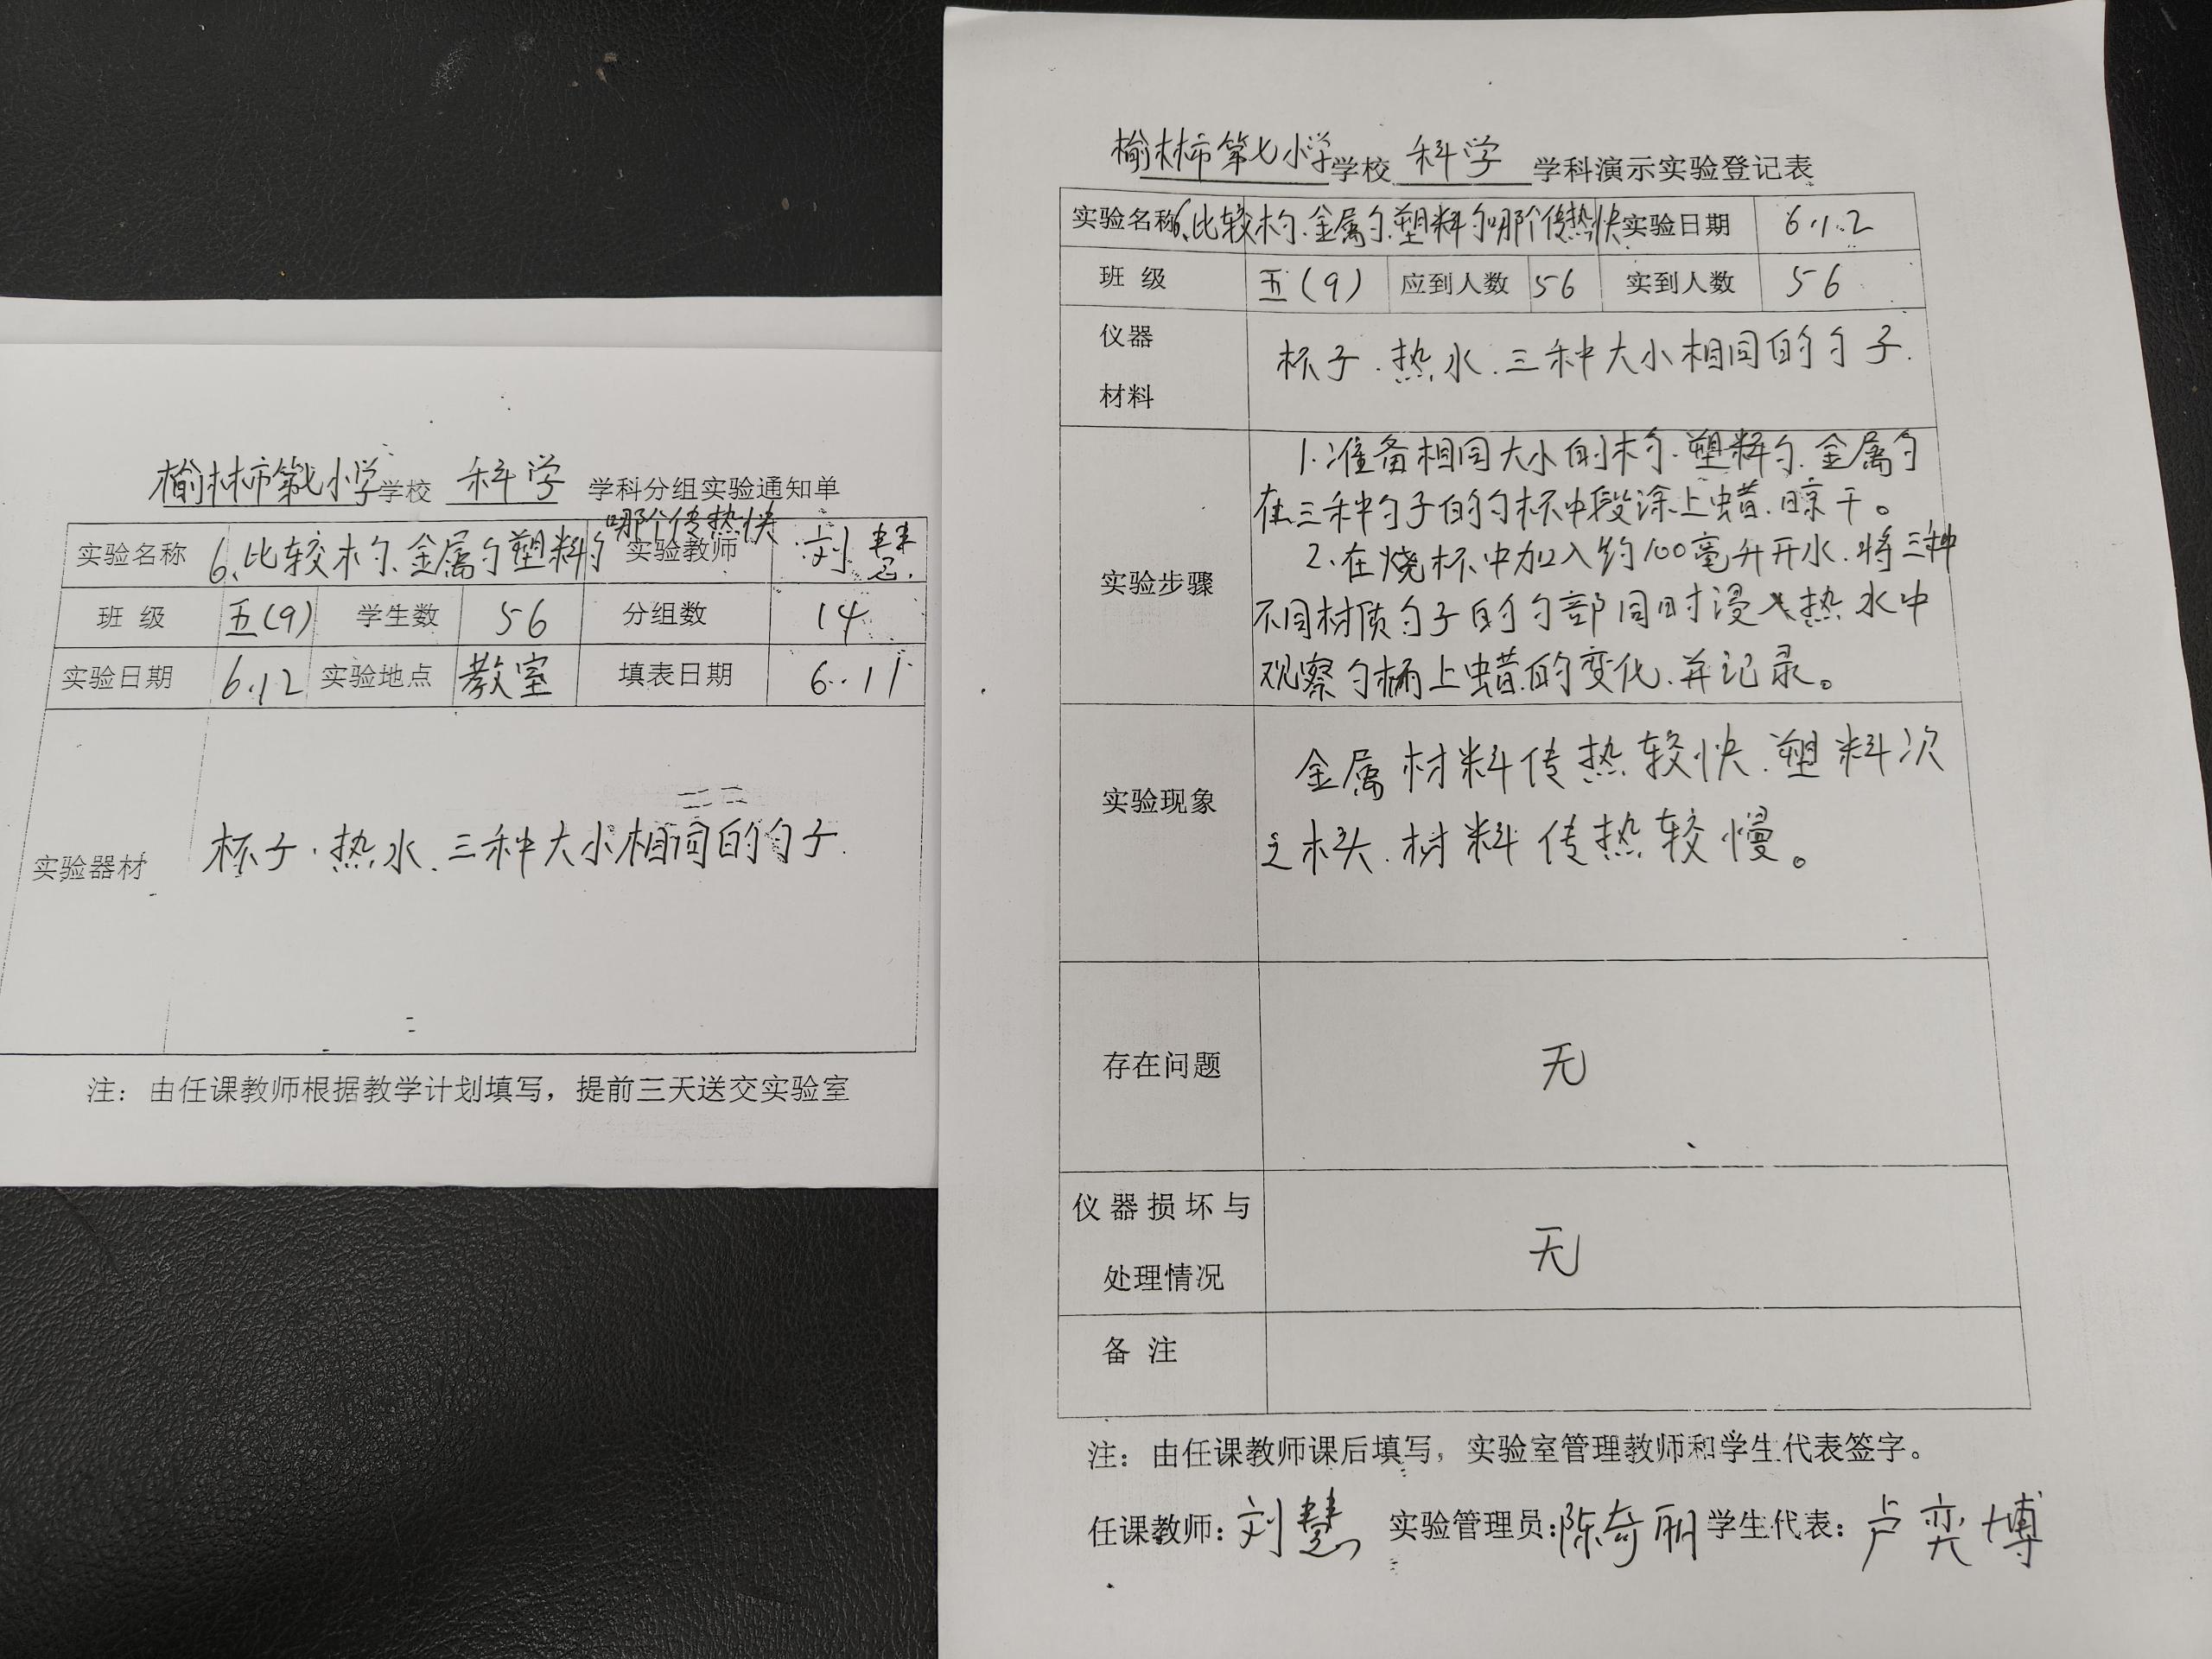 榆林市第七小学学校 科学 学科分组实验通知单
哪个传热快
实验名称 6、比较木勺、金属勺塑料勺 实验教师 刘慧
班 级 五(9) 学生数 56 分组数 14
实验日期 6.12 实验地点 教室 填表日期 6.11
实验器材 杯子.热水.三种大小相同的勺子.
注：由任课教师根据教学计划填写，提前三天送交实验室
榆林市第七小学学校 科学 学科演示实验登记表
实验名称 6、比较木勺.金属勺.塑料勺哪个传热快 实验日期 6.1.2
班 级 五(9) 应到人数 56 实到人数 56
仪器
杯子.热水.三种大小相同的勺子.
材料
1.准备相同大小的木勺.塑料勺.金属勺
在三种勺子的勺杯中段涂上蜡.晾干。
2.在烧杯中加入约100毫升开水.将三种
实验步骤
不同材质勺子的勺部同时浸入热水中
观察勺柄上蜡的变化.并记录。
金属材料传热较快.塑料次
实验现象
之木头.材料传热较慢。
存在问题 无
仪器损坏与
无
处理情况
备 注
注：由任课教师课后填写，实验室管理教师和学生代表签字。
任课教师：刘慧 实验管理员：陈奇丽 学生代表：卢奕博